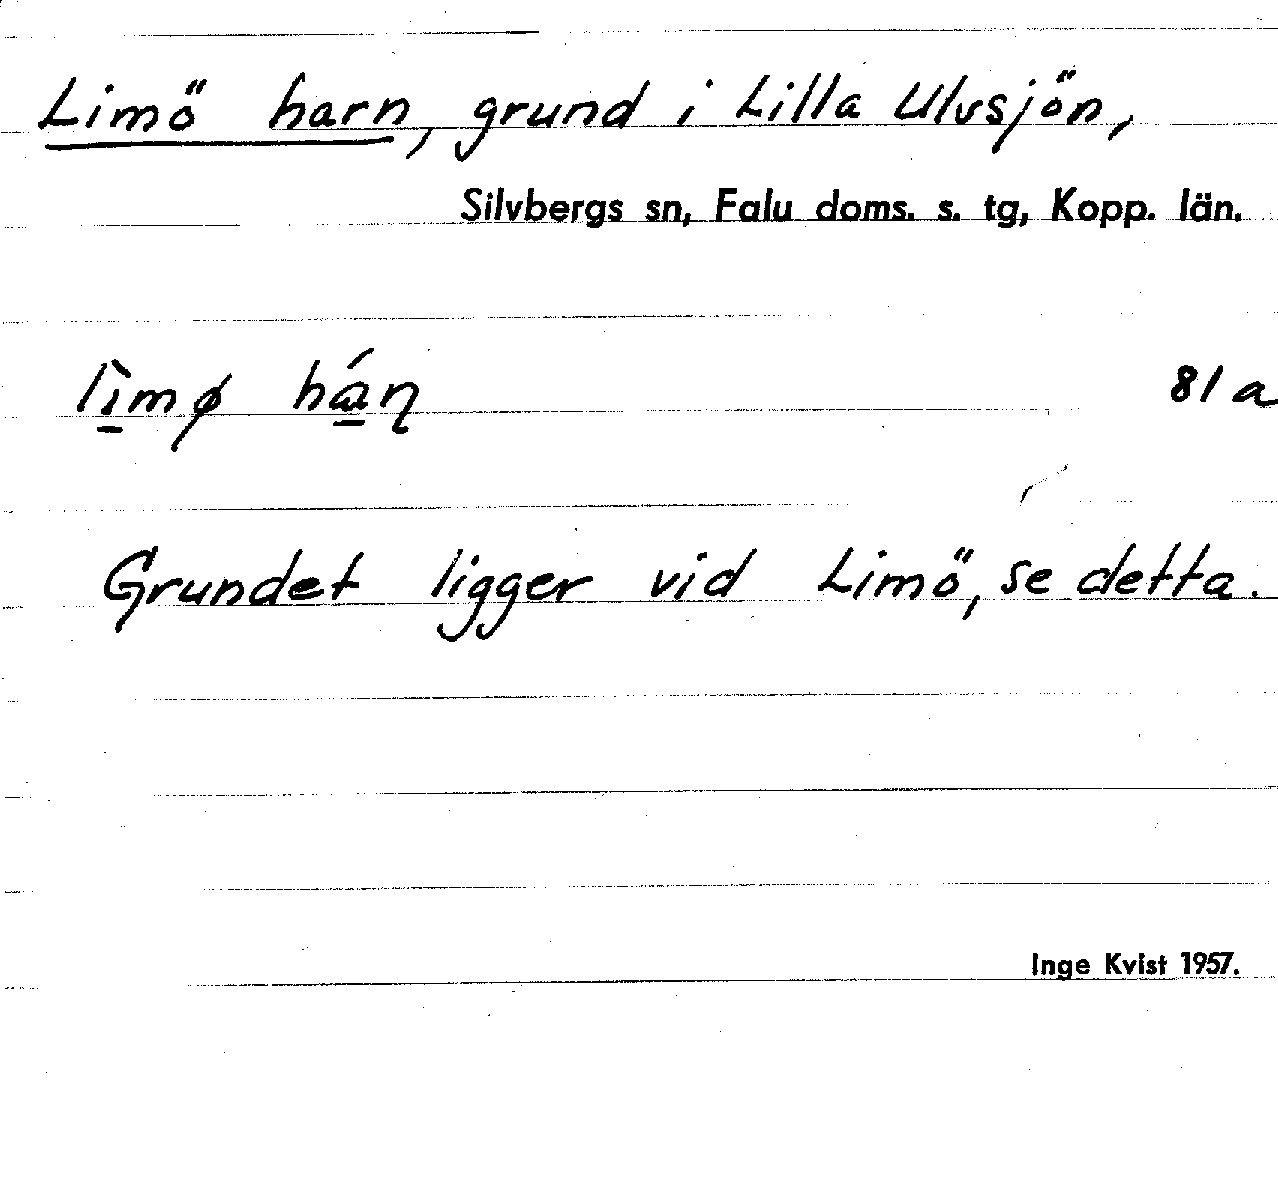 Limö harn, grund i Lilla Ulvsjön,
Silvbergs sn, Falu doms. s. tg, Kopp. län.
lìmø háɳ 81 a
Grundet ligger vid Limö, se detta.
Inge Kvist 1957.